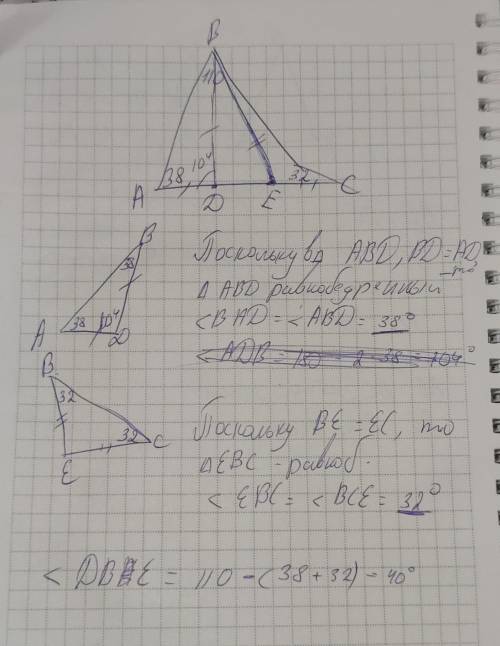 B
110
38 104 32
A D E C
B
38
38 104
A D
Поскольку в Δ ABD, BD=AD, то
Δ ABD равнобедренный
<BAD=<ABD=38°
<ADB=180 2 38=104°
B
32
32
C
E
Поскольку BE=EC, то
ΔEBC - равноб.
< EBC = < BCE = 32°
< DBE = 110 - (38+32) = 40°